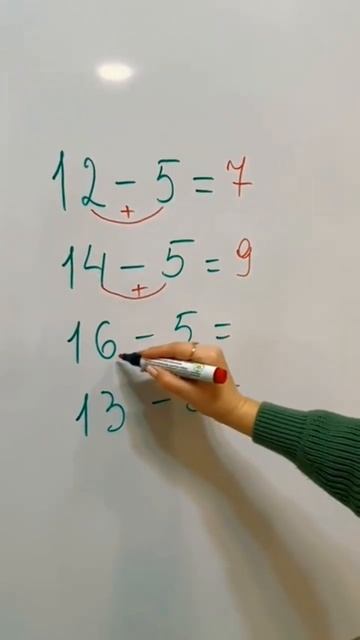 12 - 5 = 7
+
14 - 5 = 9
+
16 - 5 =
13 -